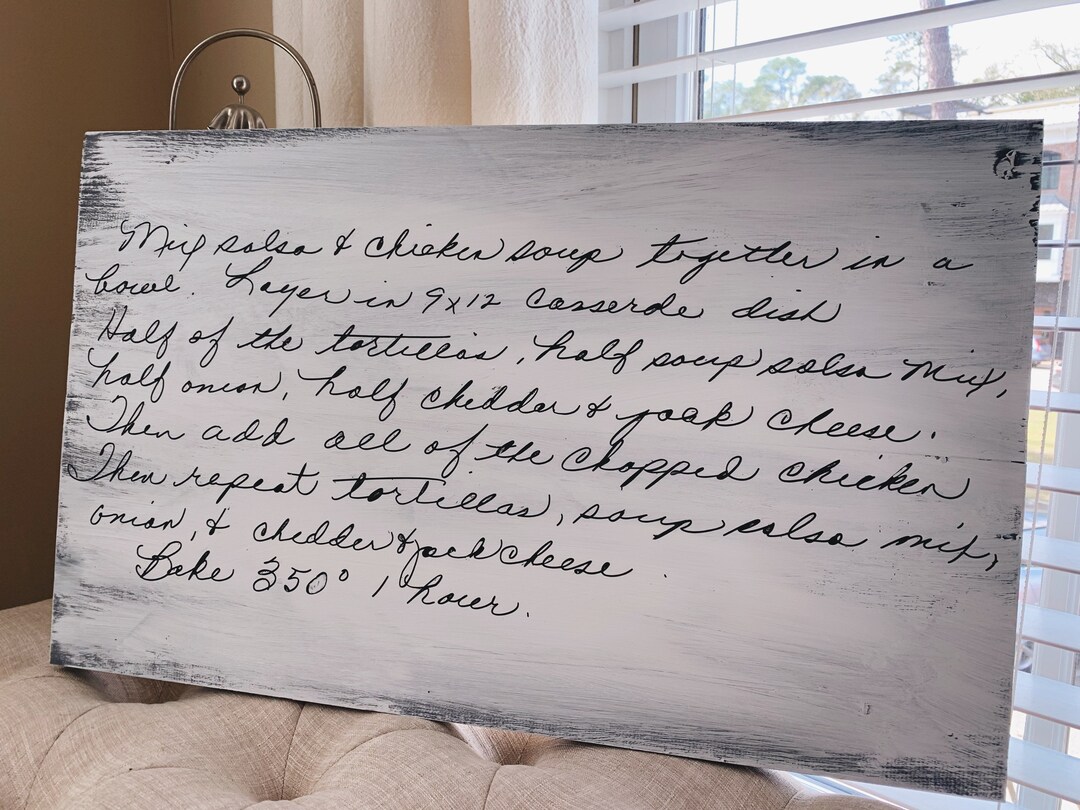 Mix salsa & chicken soup together in a
bowl. Layer in 9x12 Casserole dish
Half of the tortillas, half soup salsa mix,
half onion, half chedder & jack cheese.
Then add all of the chopped chicken
Then repeat tortillas, soup salsa mix,
onion, & chedder & jack cheese.
Bake 350° 1 hour.